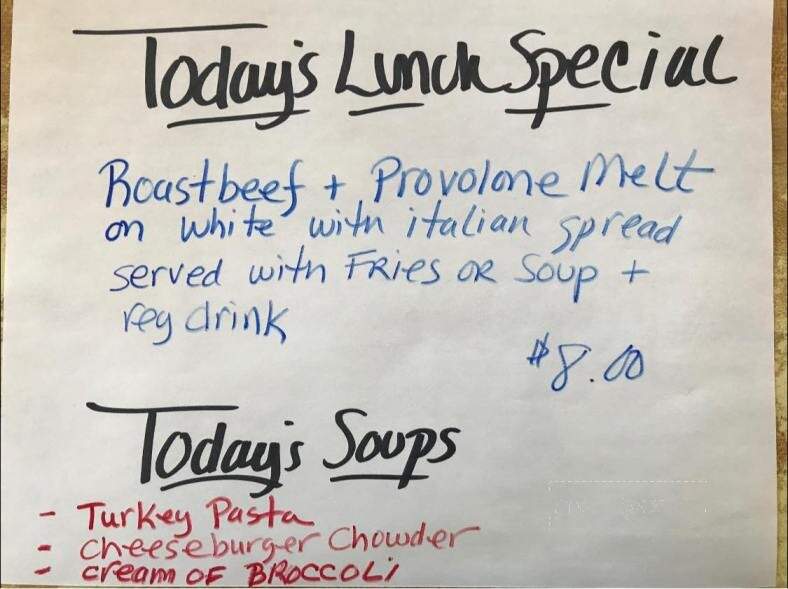 Today's Lunch Special
Roastbeef + Provolone Melt
on white with italian spread
served with FRies OR Soup +
reg drink
$8.00
Today's Soups
- Turkey Pasta
- Cheeseburger Chowder
- Cream OF BROCCOLi